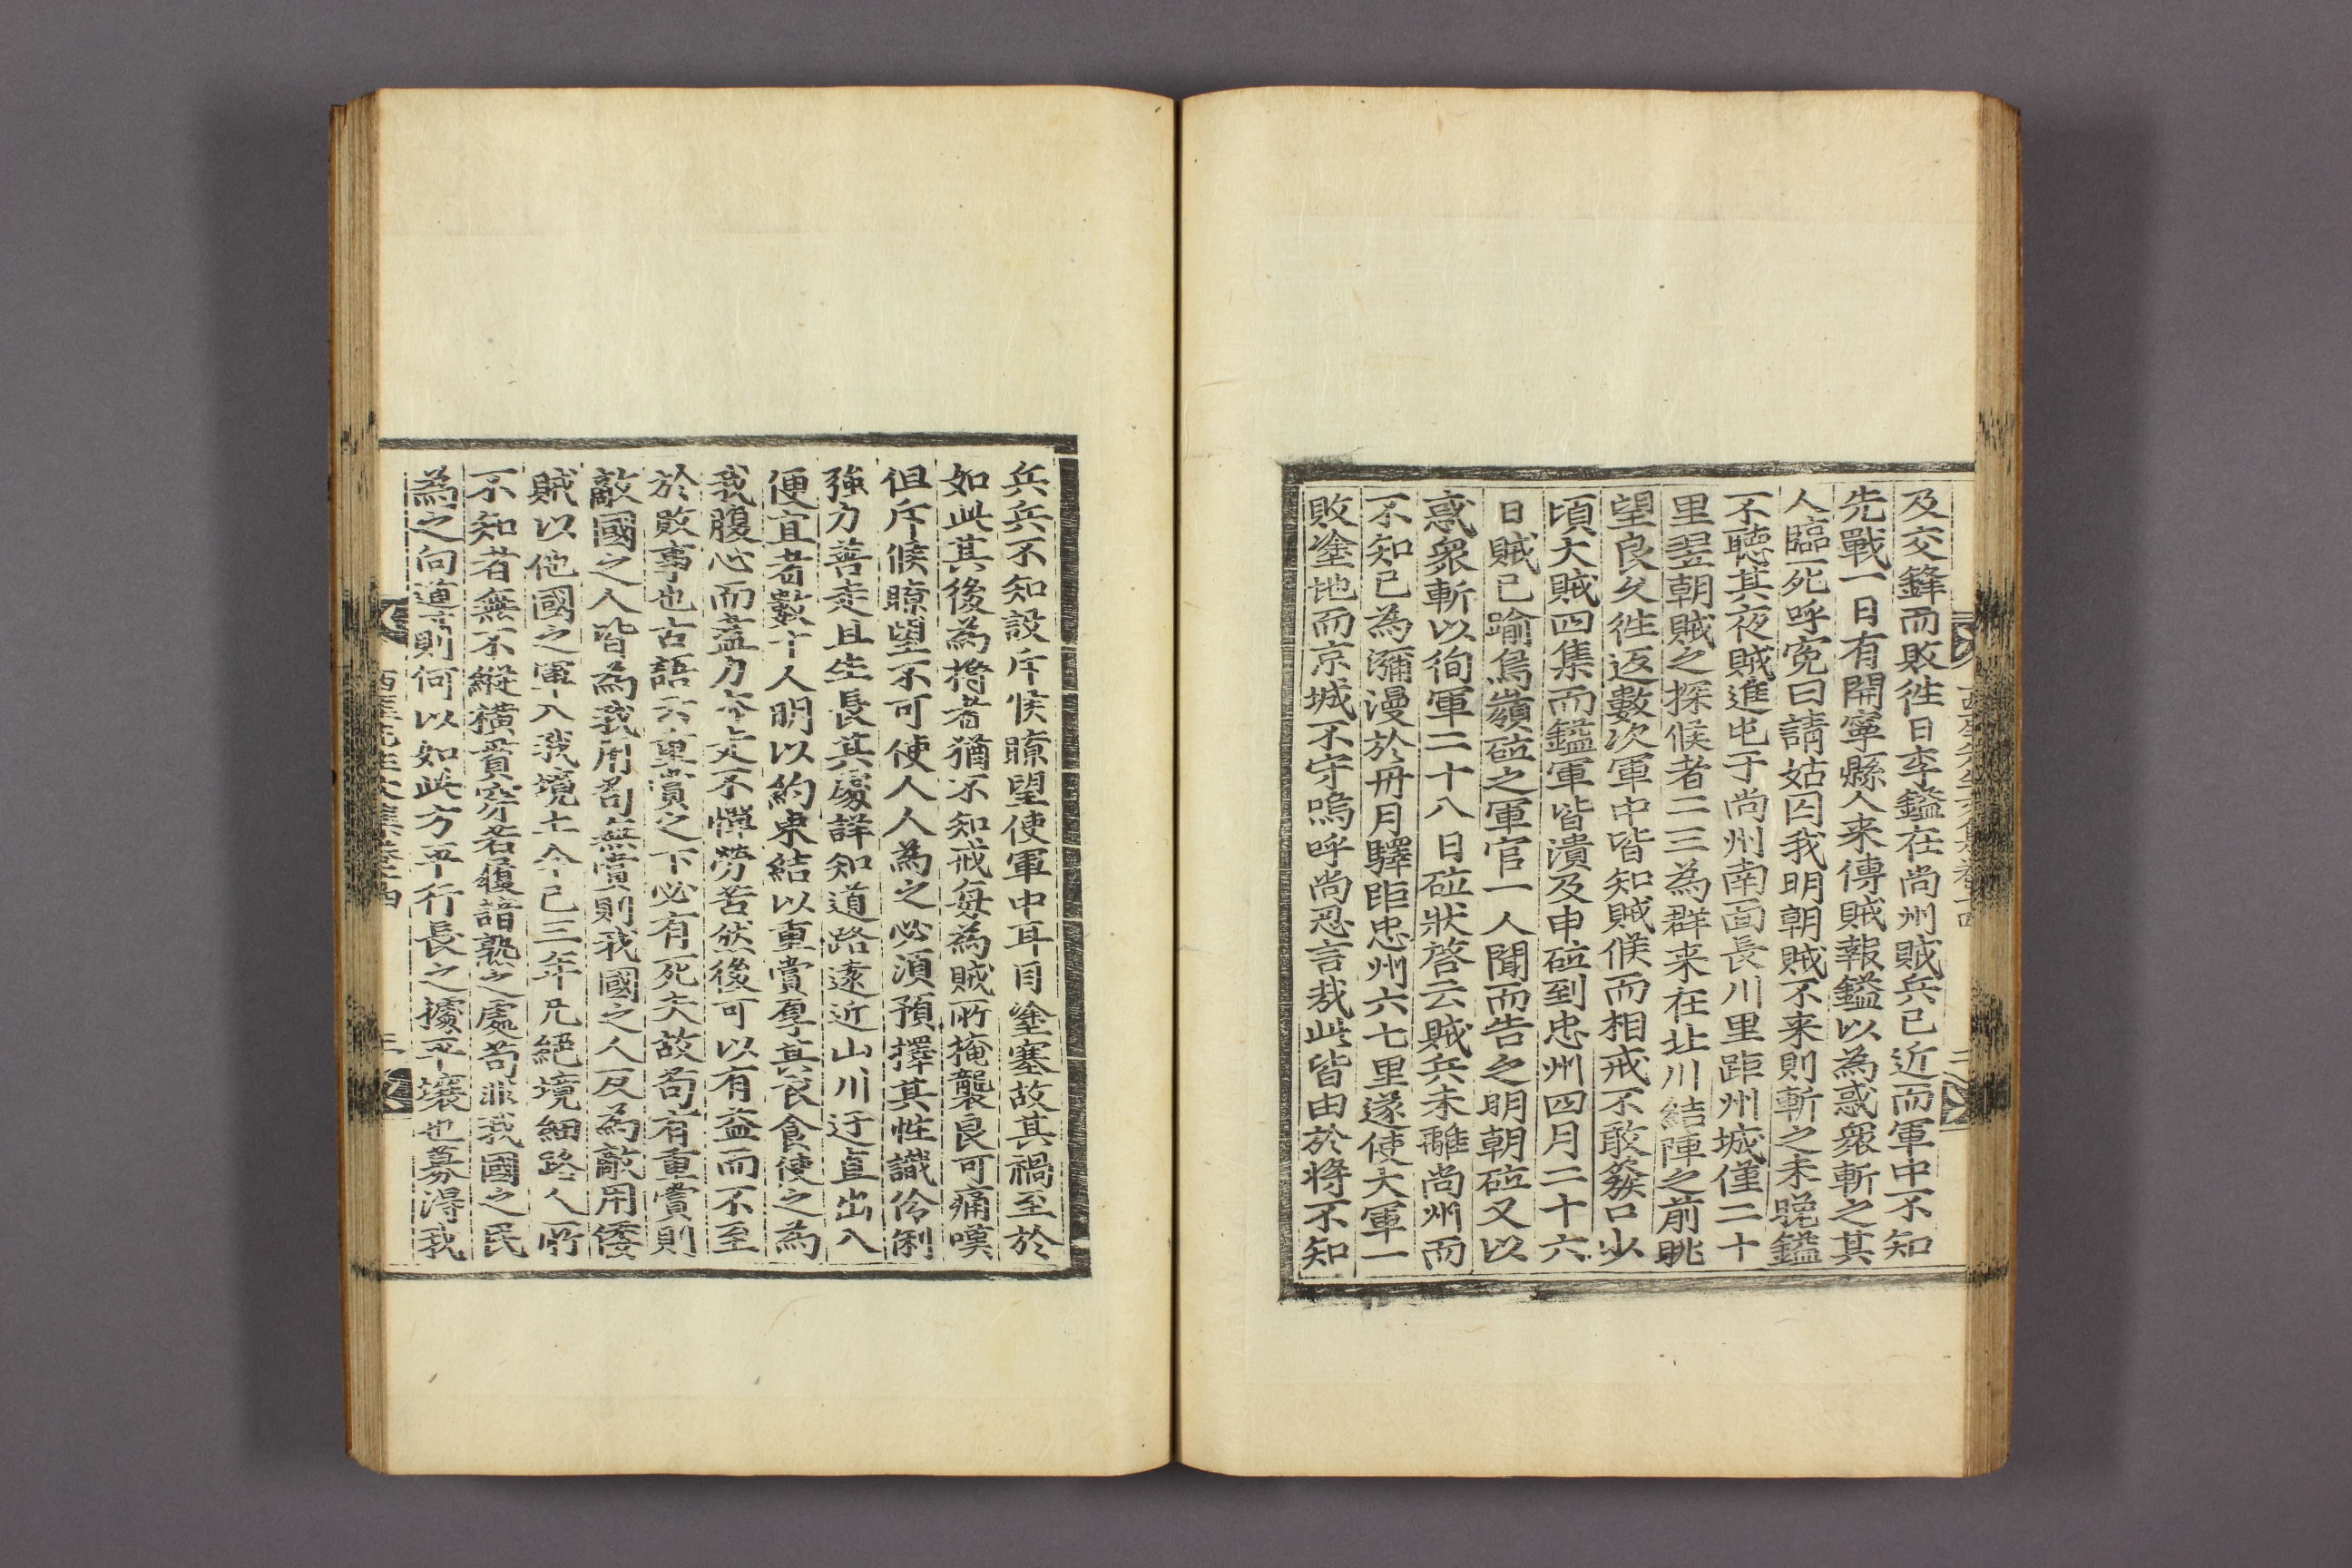 及交鋒而敗往日李鎰在尚州賊兵已近而軍中不知
先戰一日有開寧縣人来傳賊報鎰以為惑衆斬之其
人臨死呼寃曰請姑囚我明朝賊不来則斬之未晩鎰
不聴其夜賊進屯于尚州南面長川里距州城僅二十
里翌朝賊之探候者二三為群来在北川結陣之前眺
望良久徃返數次軍中皆知賊候而相戒不敢發口少
頃大賊四集而鎰軍皆潰及申砬到忠州四月二十六
日賊已踰鳥嶺砬之軍官一人聞而告之明朝砬又以
惑衆斬以徇軍二十八日砬狀啓云賊兵未離尚州而
不知已為瀰漫於丹月驛距忠州六七里遂使大軍一
敗塗地而京城不守嗚呼尚忍言㢤此皆由於将不知
兵兵不知設斥候瞭望使軍中耳目塗塞故其禍至於
如此其後為将者猶不知戒每為賊所掩襲良可痛嘆
但斥候瞭望不可使人人為之必湏預擇其性識伶俐
強力善走且生長其處詳知道路遠近山川迂直出入
便宜者數十人明以約束結以重賞厚其衣食使之為
我腹心而盡力奔走不憚勞苦然後可以有益而不至
於敗事也古語云重賞之下必有死夫故苟有重賞則
敵國之人皆為我用苟無賞則我國之人反為敵用倭
賊以他國之軍入我境土今已三年凡絕境細路人所
不知者無不縱橫貫穿若履諳熟之處苟非我國之民
為之向導則何以如此方平行長之據平壤也募得我
西厓先生文集卷十四 三